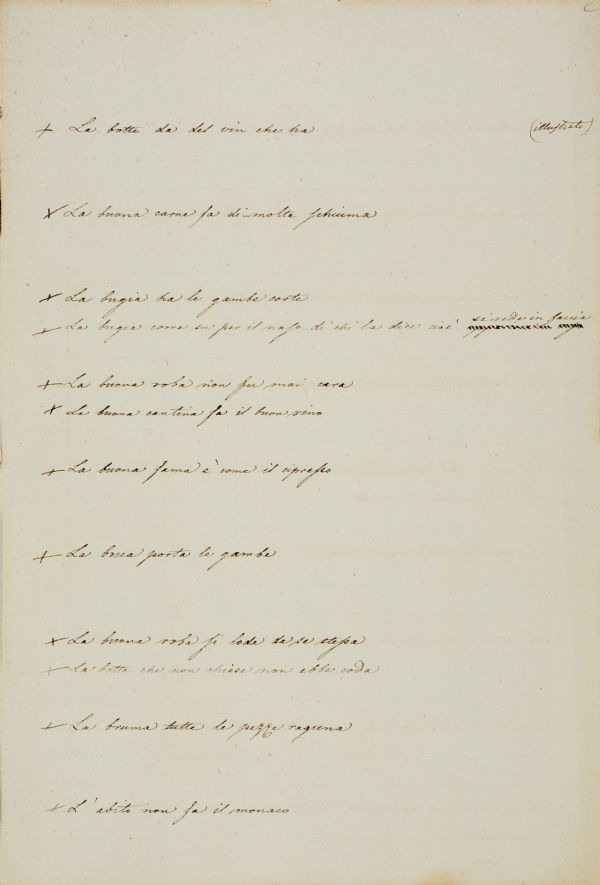 C
+ La botte da del vin che ha (illustrato)
X La buona carne fa di-molta schiuma
x La bugia ha le gambe corte
+ La bugia corre su per il naso di chi la dice cioè si vede in faccia
+ La buona roba non fu mai cara
x La buona cantina fa il buon vino
+ La buona fama è come il cipresso
+ La bocca porta le gambe
x La buona roba si loda da se stessa
+ La botta che non chiese non ebbe coda
+ La bruma tutte le pezze raguna
+ L'abito non fa il monaco